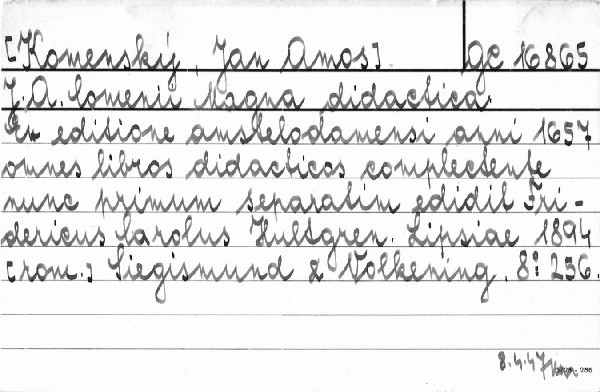 [Komenský, Jan Amos] GC 16865
J. A. Comenii Magna didactica.
Ex editione amstelodamensi anni 1657
omnes libros didacticos complectente
nunc primum separatim edidit Fri-
dericus Carolus Hultgren. Lipsiae 1894
[rom.] Siegismund & Volkening. 8° 256.
8.4.47